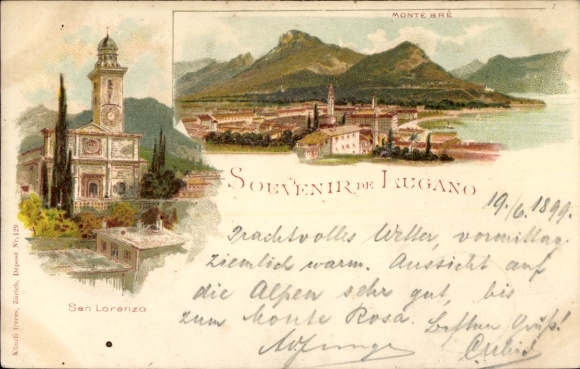 MONTE BRÈ
SOUVENIR DE LUGANO
19./6. 1899.
Prachtvolles Wetter, vormittag
ziemlich warm. Aussicht auf
die Alpen sehr gut, bis
zum Monte Rosa. Besten Gruß!
San Lorenzo
Künzli frères, Zürich, Déposé Nr. 129